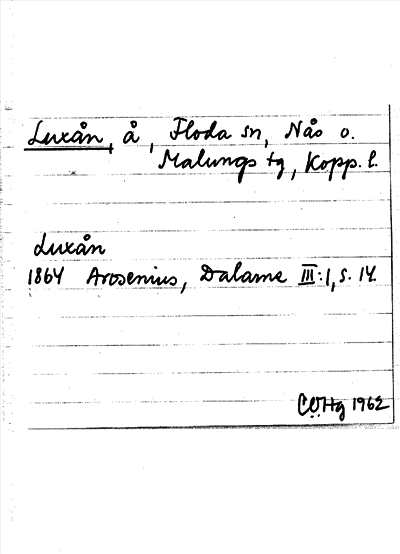 Luxån, å, Floda sn, Nås o.
Malungs tg, Kopp. l.
Luxån
1864 Arosenius, Dalarne III:1, s. 14.
CWHg 1962